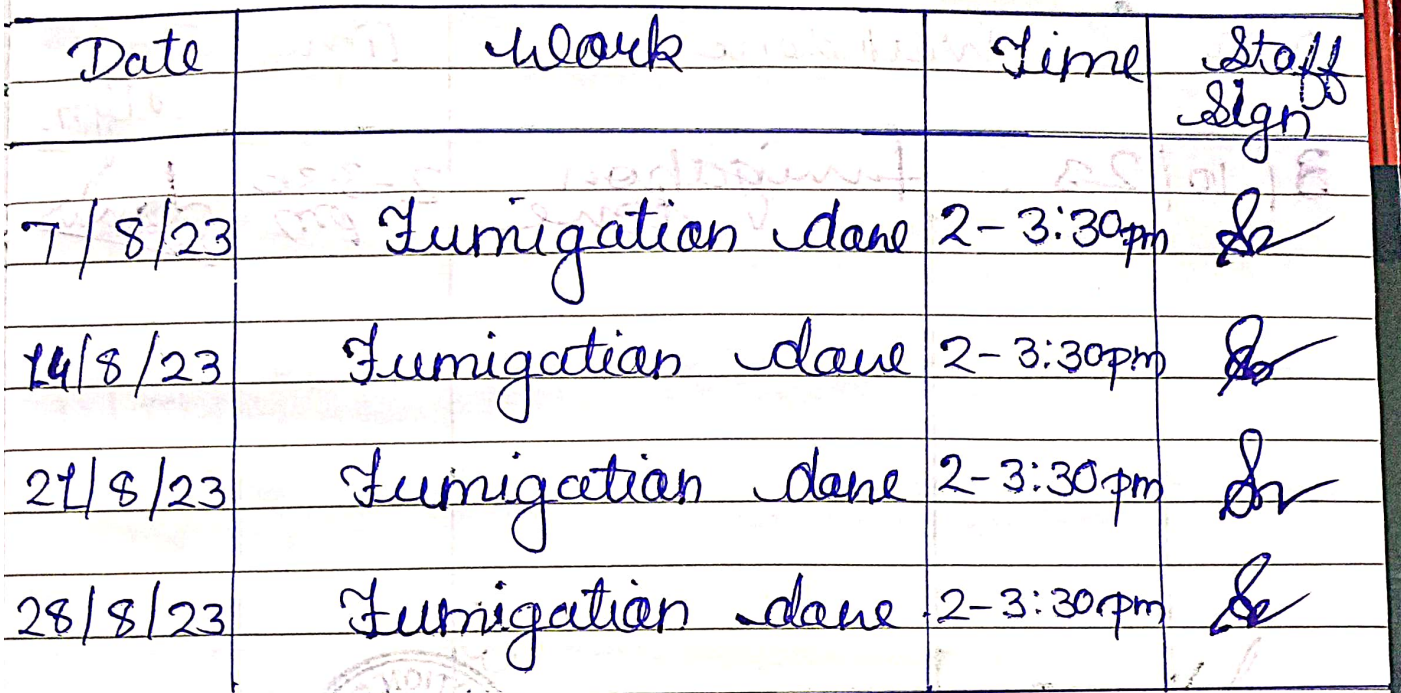 Date Work Time Staff
Sign
7/8/23 Fumigation done 2-3:30pm
14/8/23 Fumigation done 2-3:30pm
21/8/23 Fumigation done 2-3:30pm
28/8/23 Fumigation done 2-3:30pm